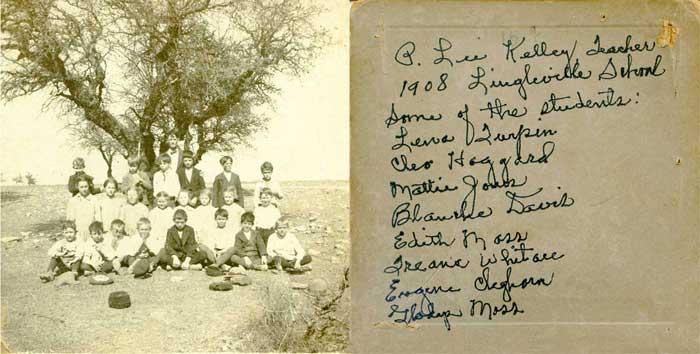 P. Lee Kelley Teacher
1908 Lingleville School
Some of the students:
Lena Turpin
Cleo Haggard
Mattie Jones
Blanche Davis
Edith Moss
Whitacre
Eugene Cleghorn
Gladys Moss